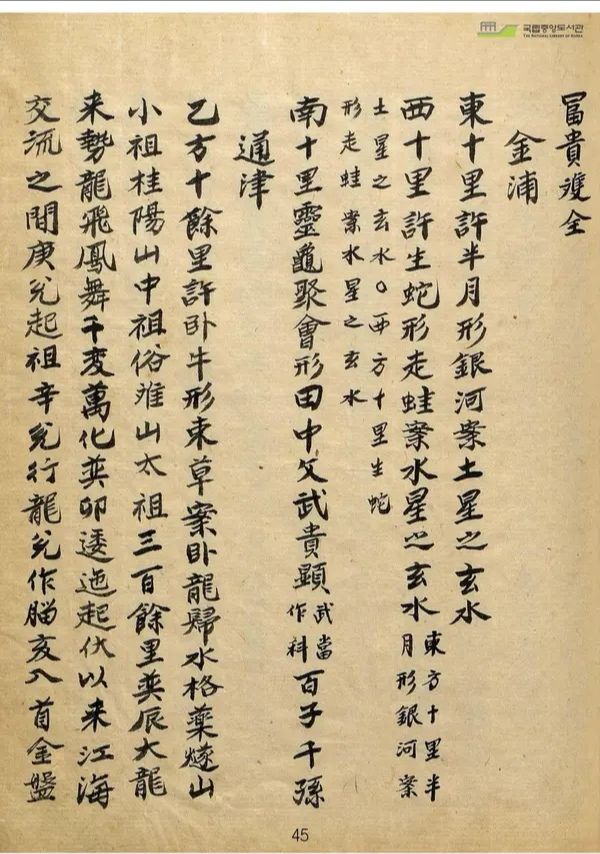 국립중앙도서관
THE NATIONAL LIBRARY OF KOREA
冨貴雙全
金浦
東十里許半月形銀河案土星之玄水
西十里許生蛇形走蛙案水星之玄水
東方十里半
月形銀河案
土星之玄水○西方十里生蛇
形走蛙案水星之玄水
南十里靈龜聚會形田中文武貴顯
武當
作科
百子千孫
通津
乙方十餘里許卧牛形束草案卧龍歸水格藥燧山
小祖桂陽山中祖俗離山太祖三百餘里巽辰大龍
来勢龍飛鳳舞千変萬化巽卯逶迤起伏以来江海
交流之間庚兌起祖辛兌行龍兌作腦亥入首金盤
45